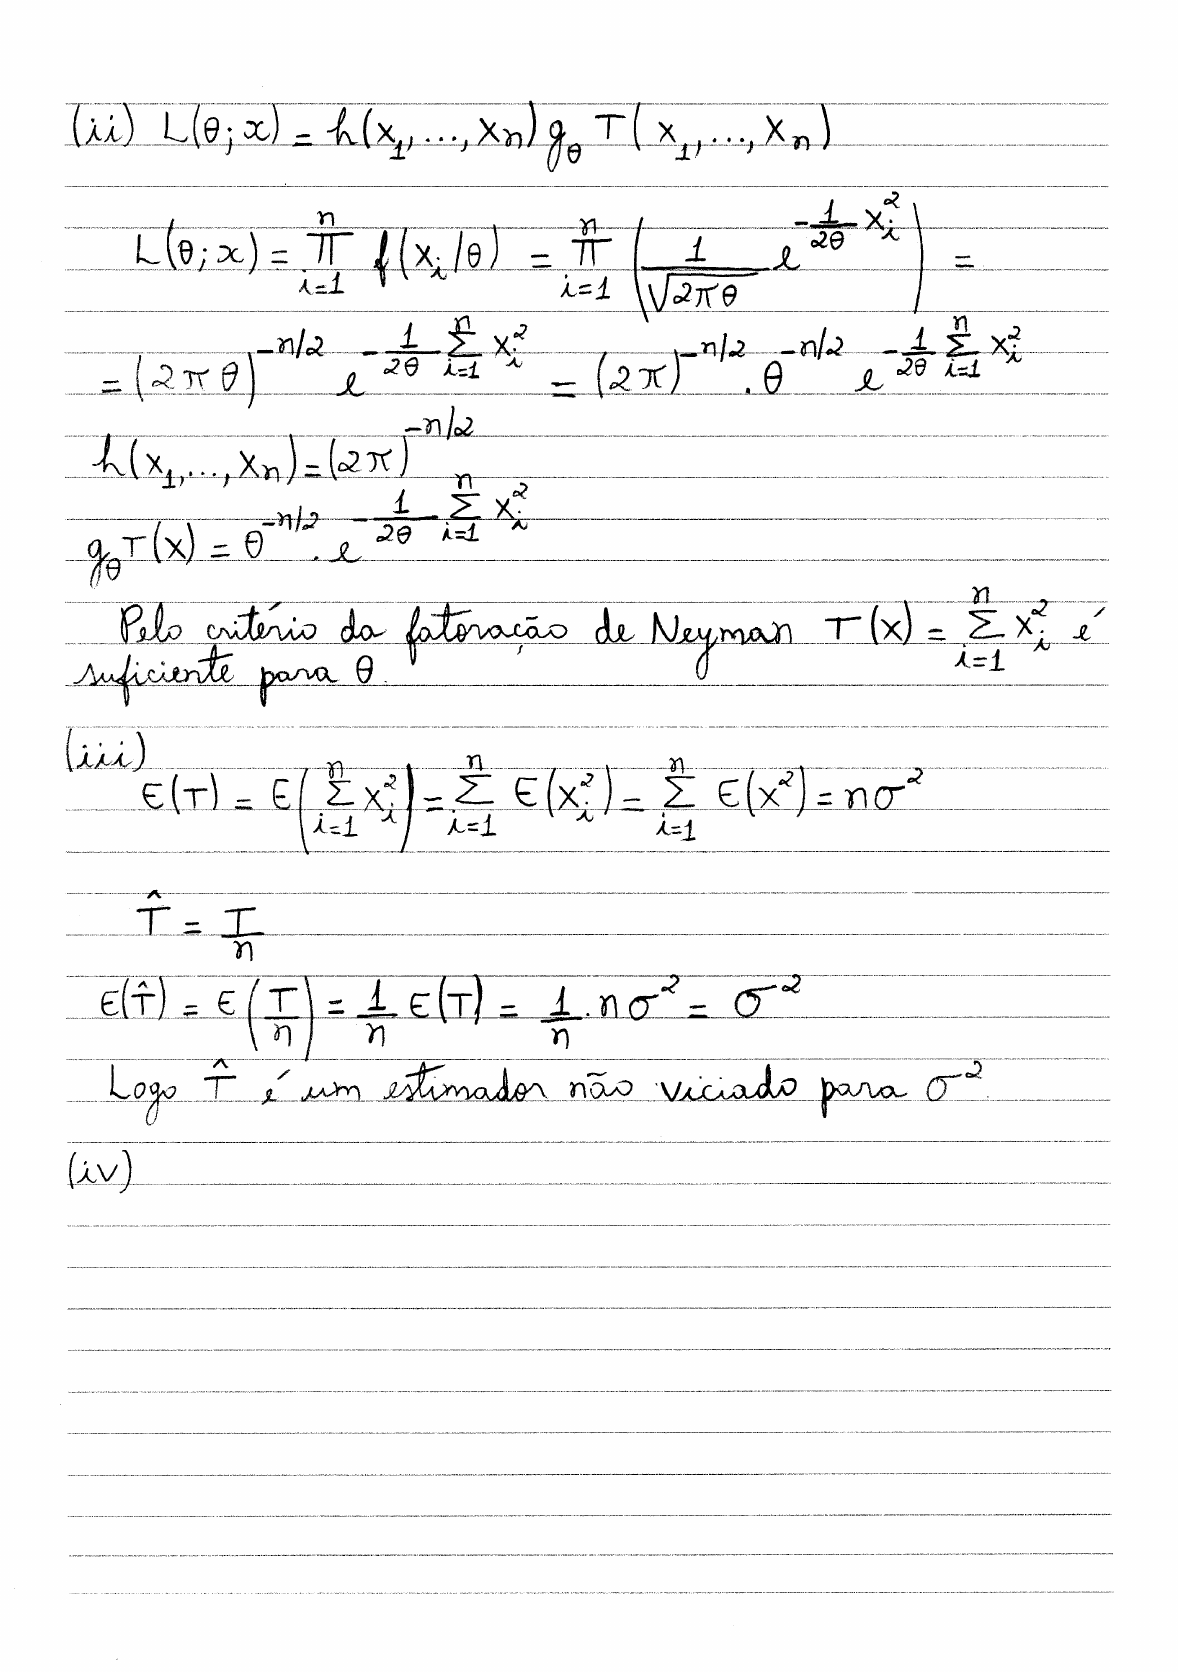 (ii) L(θ; x) = h(x₁, ..., xₙ) g_θ T(x₁, ..., xₙ)
L(θ; x) = ∏_{i=1}^{n} f(xᵢ/θ) = ∏_{i=1}^{n} (1/√(2πθ) e^{-1/(2θ) xᵢ²}) =
= (2πθ)^{-n/2} e^{-1/(2θ) ∑_{i=1}^{n} xᵢ²} = (2π)^{-n/2} . θ^{-n/2} e^{-1/(2θ) ∑_{i=1}^{n} xᵢ²}
h(x₁, ..., xₙ) = (2π)^{-n/2}
g_θ T(x) = θ^{-n/2} . e^{-1/(2θ) ∑_{i=1}^{n} xᵢ²}
Pelo critério da fatoração de Neyman T(x) = ∑_{i=1}^{n} xᵢ² é
suficiente para θ.
(iii)
E(T) = E(∑_{i=1}^{n} xᵢ²) = ∑_{i=1}^{n} E(xᵢ²) = ∑_{i=1}^{n} E(x²) = nσ²
T̂ = T/n
E(T̂) = E(T/n) = 1/n E(T) = 1/n . nσ² = σ²
Logo T̂ é um estimador não viciado para σ².
(iv)